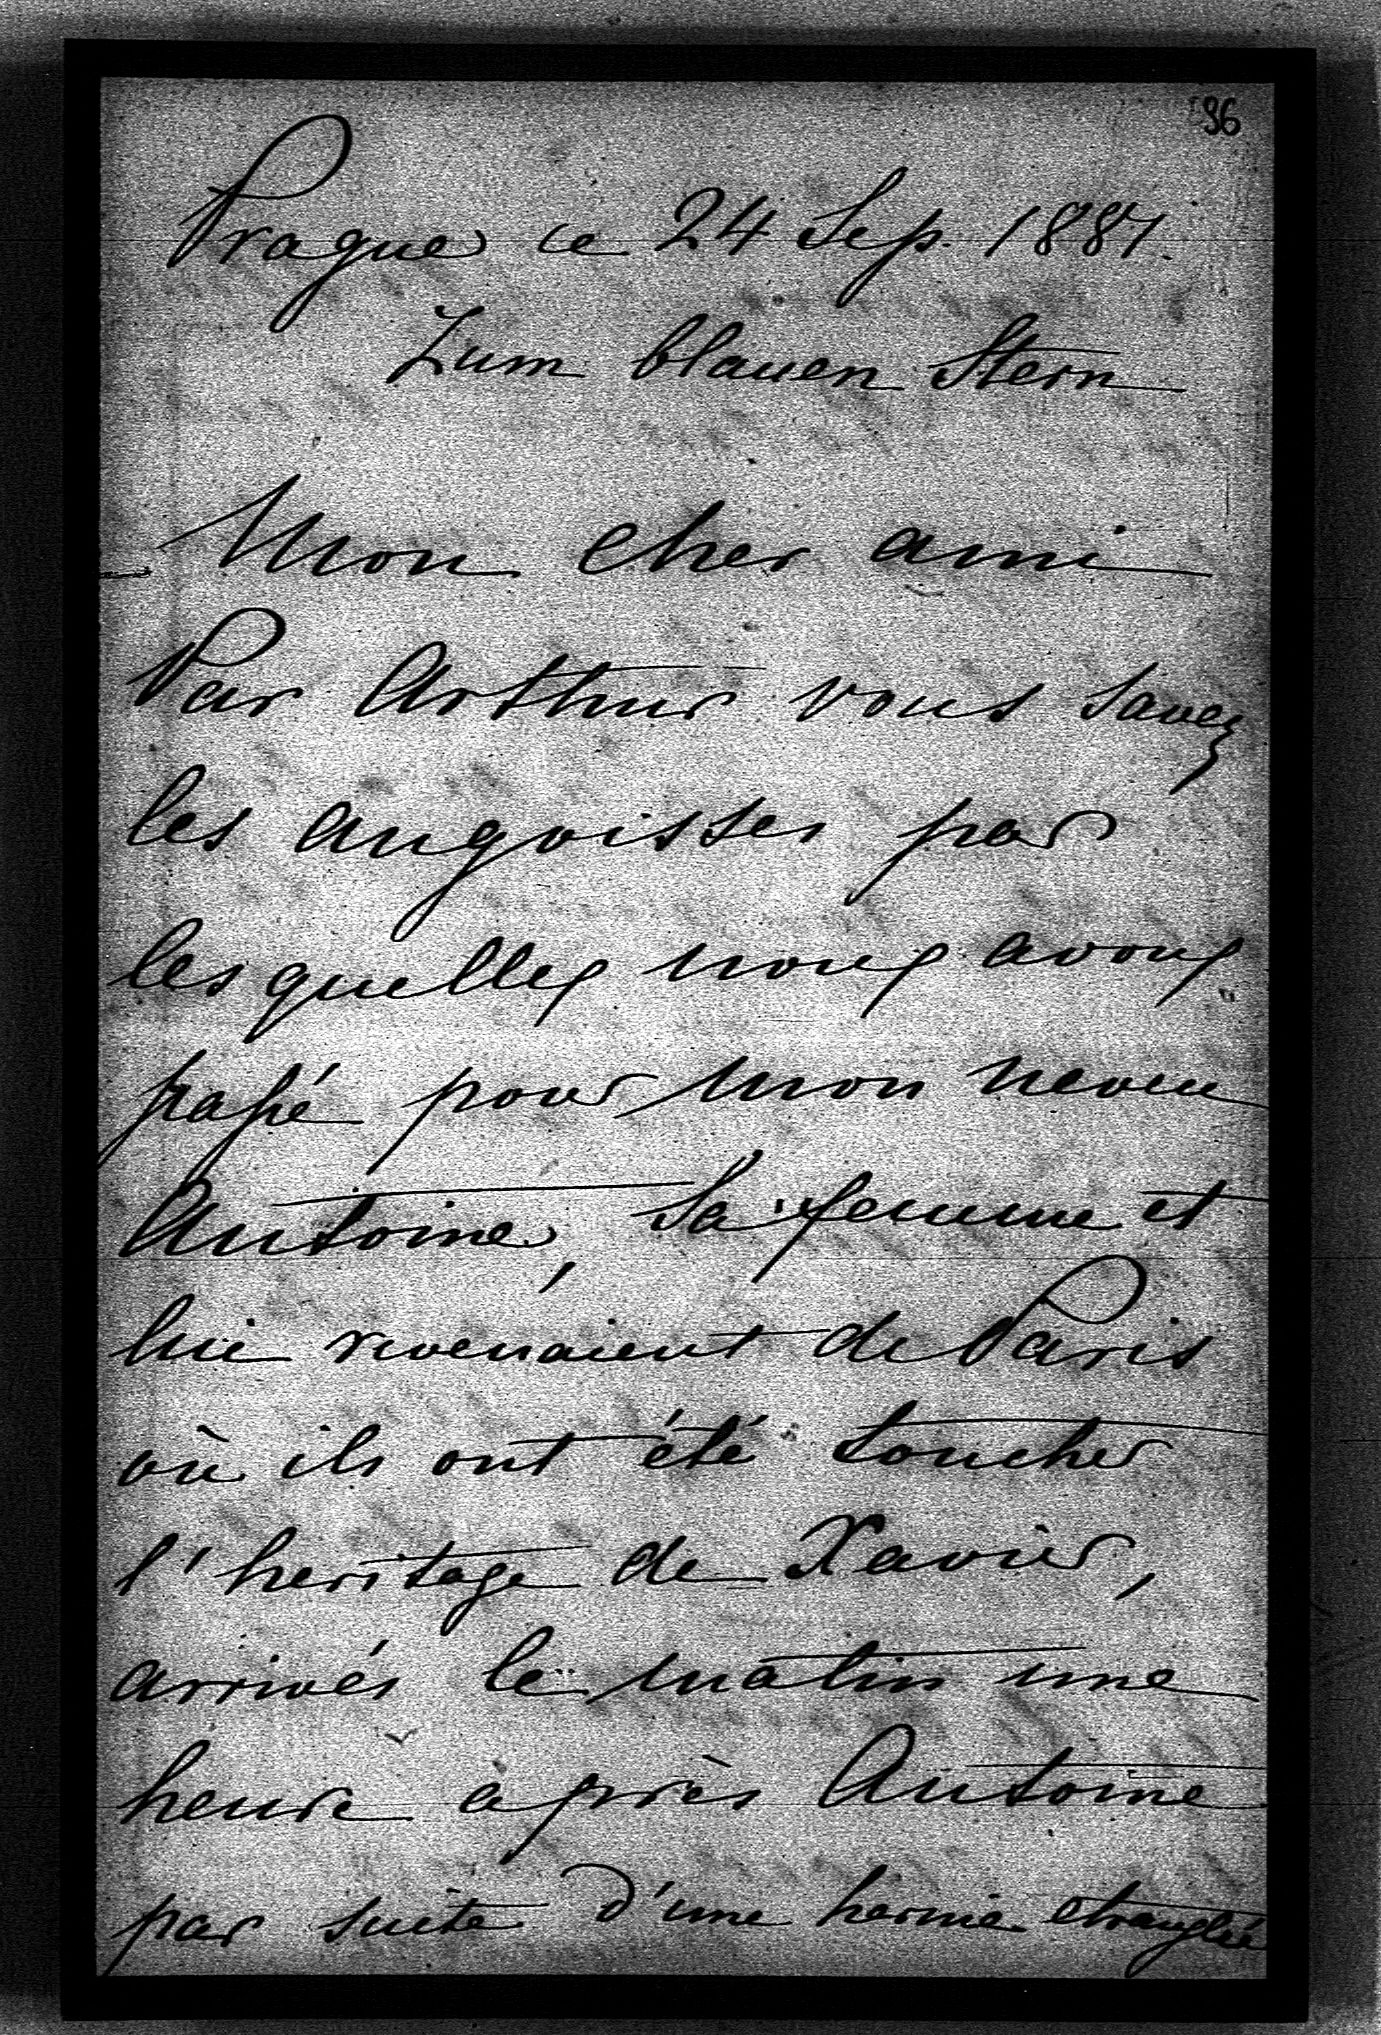 86
Prague ce 24 Sep. 1887.
Zum blauen Stern
Mon cher ami
Par Arthur vous savez
les angoisses par
lesquelles nous avons
passé pour mon neveu
Antoine, sa femme et
lui revenaient de Paris
où ils ont été toucher
l'heritage de Xavier,
arrivés le matin une
heure après Antoine
par suite d'une hernie etranglée